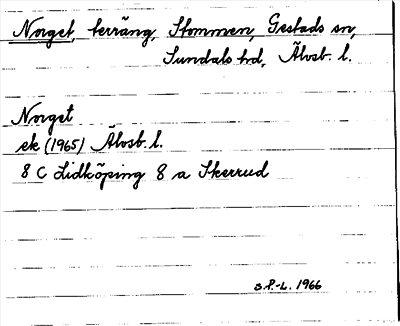 Norget, terräng, Stommen, Gestads sn,
Sundals hd, Älvsb. l.
Norget
ek (1965) Älvsb. l.
8 C Lidköping 8 a Skerrud
S.P-L. 1966